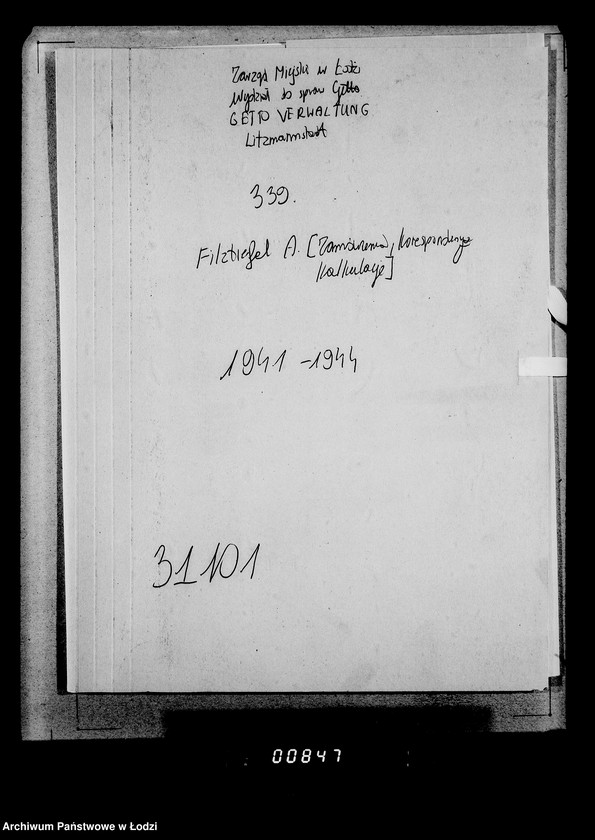 Zarząd Miejski w Łodzi
Wydział do spraw Getta
GETTO VERWALTUNG
Litzmannstadt
339.
Filztiefel A. [Zamówienia, Korespondencja
Kalkulacje]
1941-1944
31101
00847
Archiwum Państwowe w Łodzi